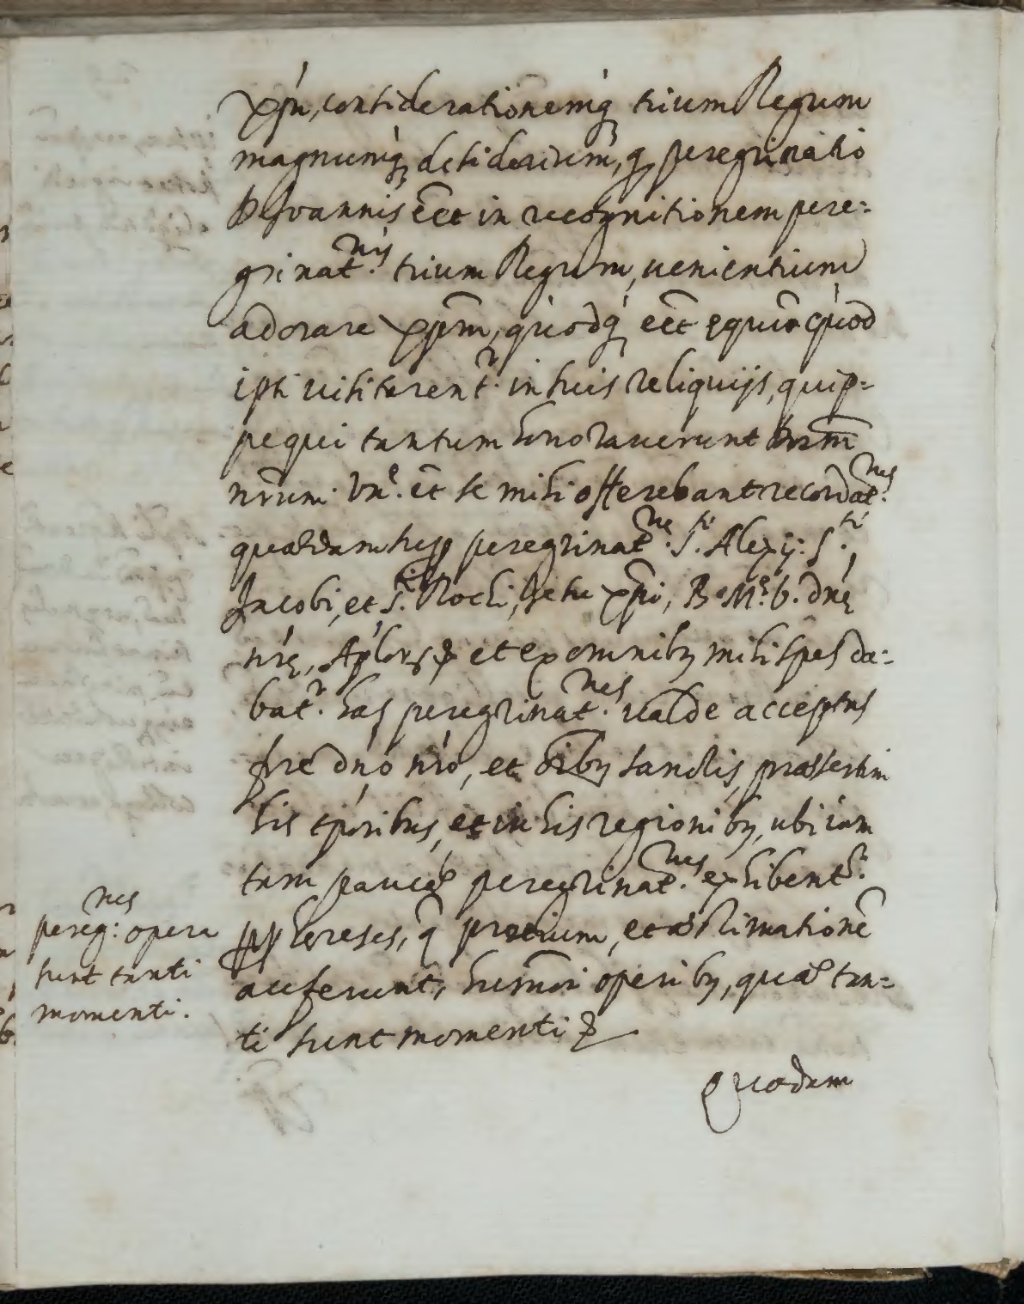 xp̄m, considerationemq́ꝫ trium Regum
magnumq́ꝫ desiderium, ꝙ peregrinatio
Joannis eēt in recognitionem pere-
grinat.nis trium Regum, uenientium
adorare xp̄m, quodq́ꝫ eēt equū quod
ipsi uisitarent.r in suis reliquijs, quip-
pe qui tantum honorauerunt
nr̄um. Vn.e et se mihi offerebant recordat.nes
quaedam sup peregrinat.ne S.ti Alexij: S.ti
Jacobi, et S.ti Rochi, Jesu xp̄i, B. M.e V. dn̄ę
nr̄ę, Ap̄lorū et ex omnibꝫ mihi spes da-
bat.r has peregrinat.nes ualde acceptas
fore dn̄o nr̄o, et oībꝫ sanctis, praesertim
his tp̄oribus, et in his regionibꝫ, ubi iam
tam paucae peregrinat.nes exhibent.r
pp hereses, q̄ pretium, et aestimationē
auferunt, humōi operibꝫ, quae tan-
ti sunt momenti
quadam
pereg:nes opera
sunt tanti
momenti.